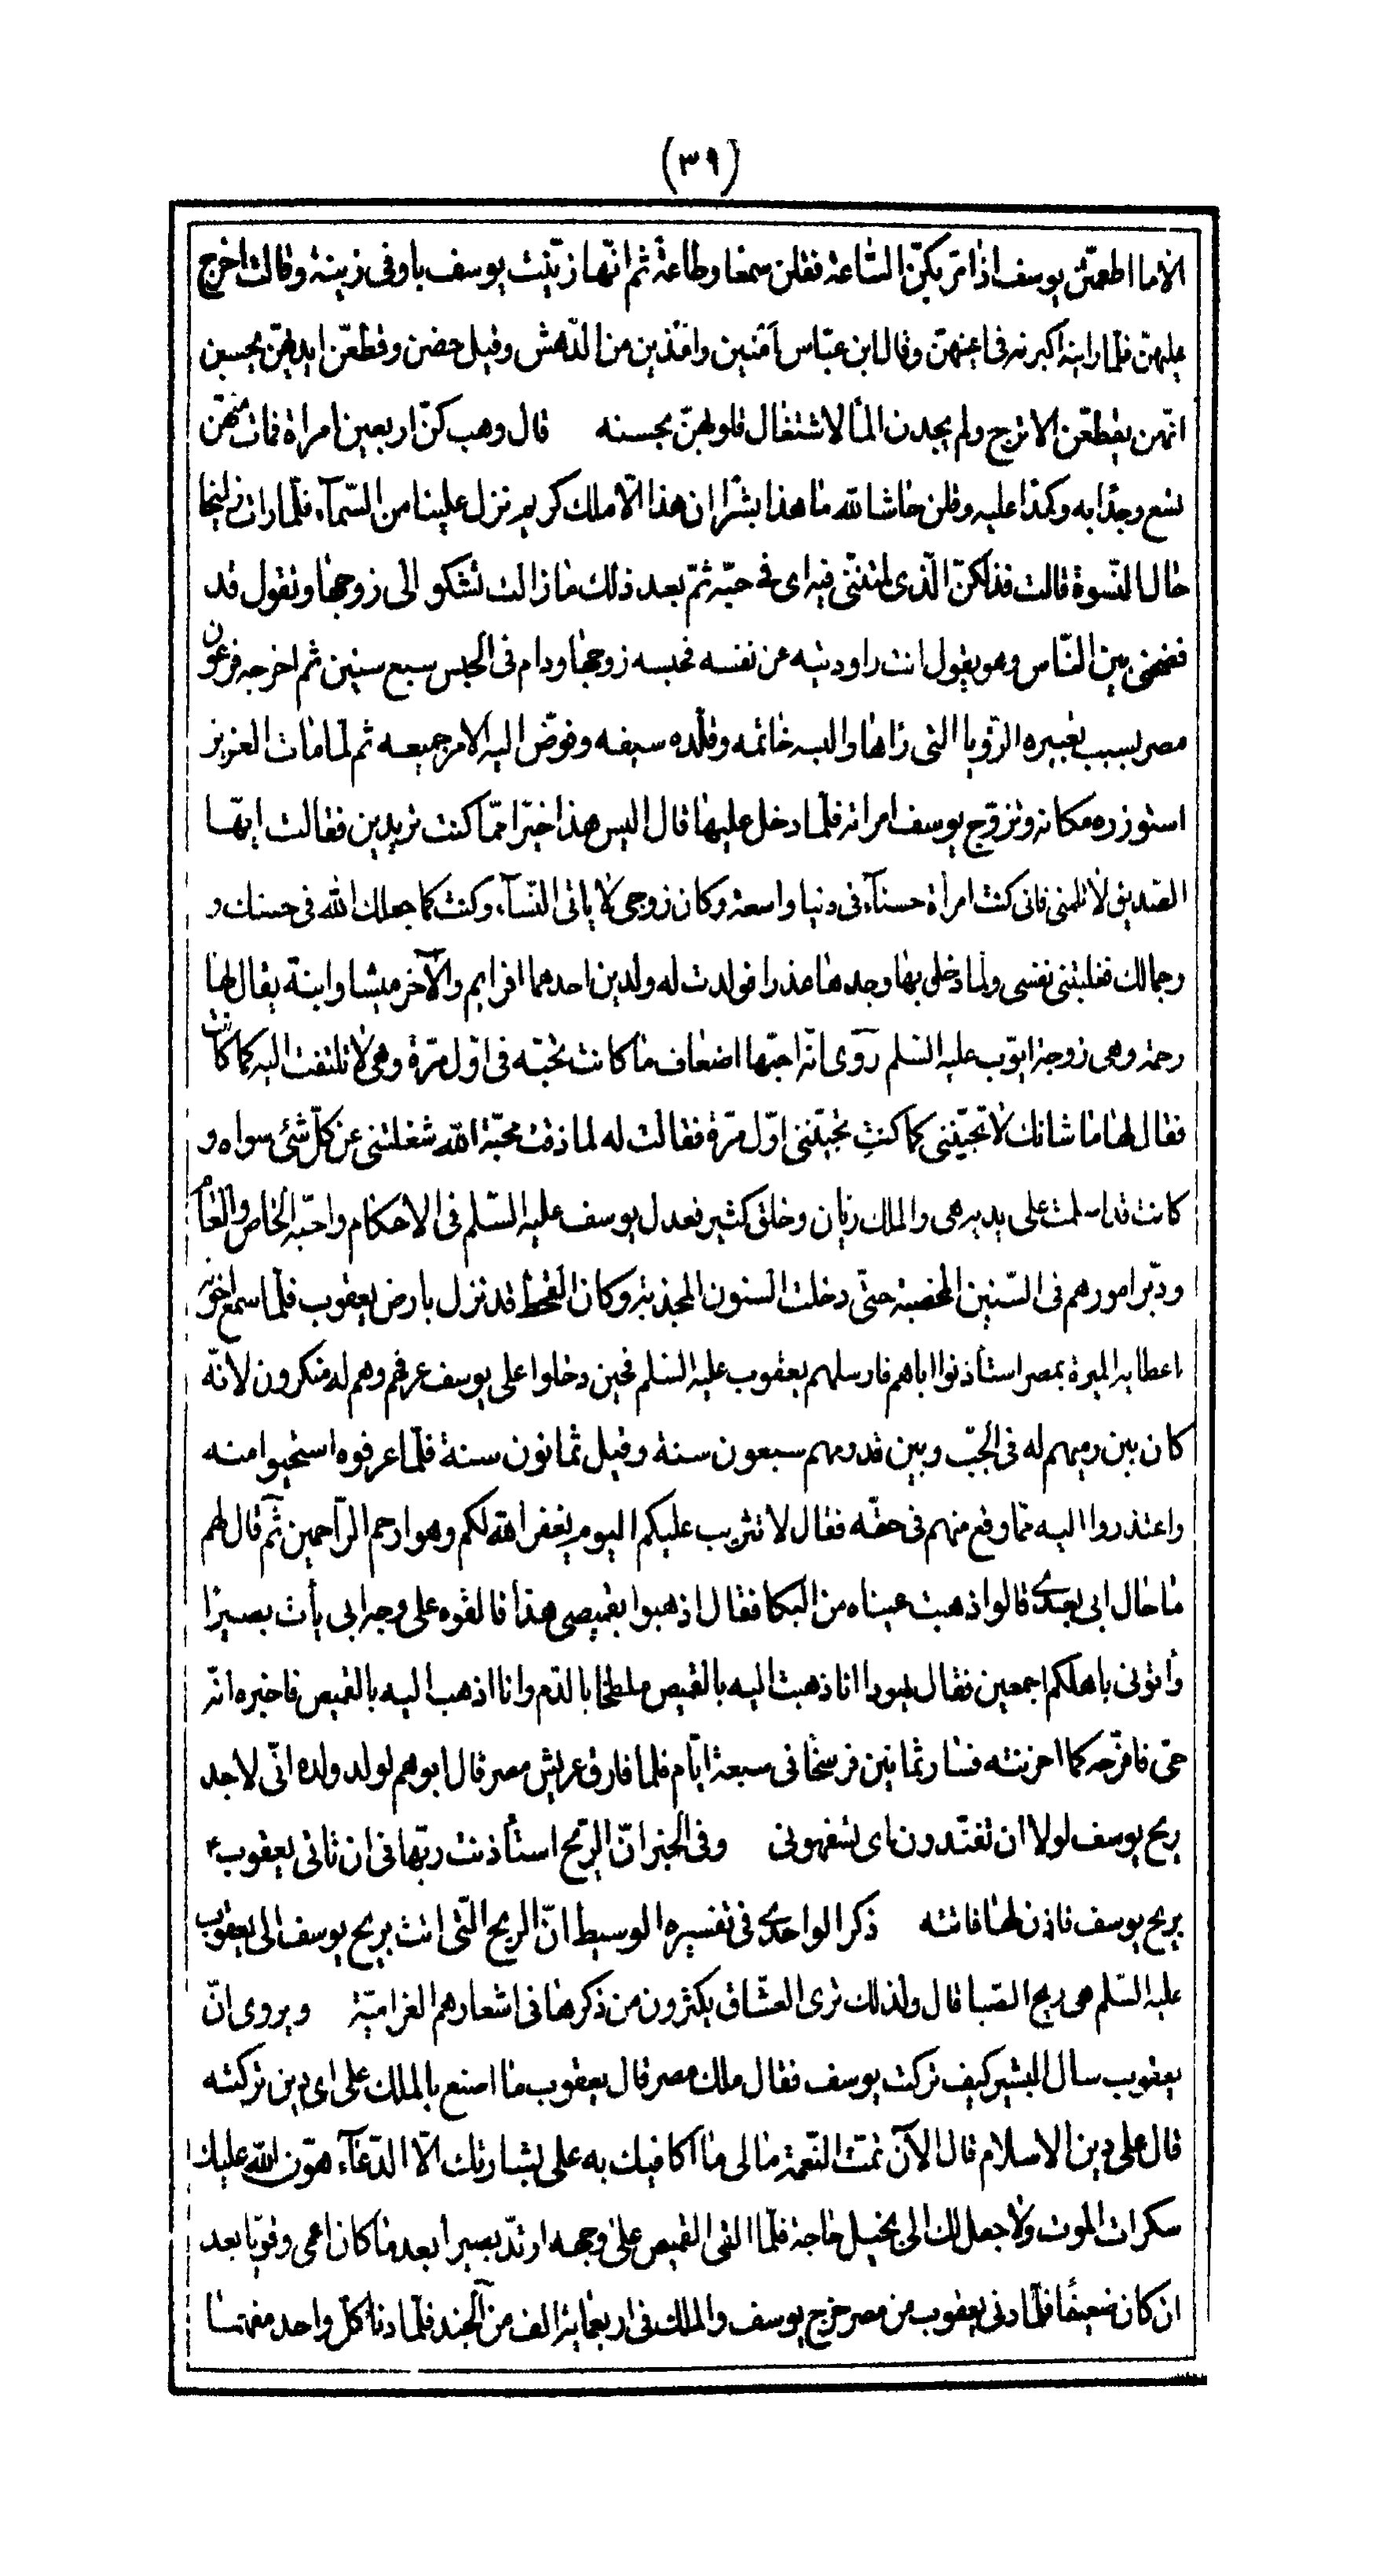 (٣٩)
الا ما اطعمتن يوسف اذا مرّ بكنّ الساعة فقلن سمعا وطاعة ثم انّها زيّنت يوسف باوفى زينة وقالت اخرج
عليهنّ فلما راينه اكبرنه فى اعينهنّ وقال ابن عبّاس امنين وامذين من الدّهش وقيل حضن وقطّعن ايديهنّ يحسبن
انّهن يقطّعن الاترج ولم يجدن الما لاشتغال قلوبهنّ بحسنه قال وهب كنّ اربعين امراة فمات منهنّ
تسع وجدًا به وكمدًا عليه وقلن حاشا لله ما هذا بشرًا ان هذا الّا ملك كريم نزل علينا من السّمآء فلمّا رات زليخا
حال النّسوة قالت فذلكنّ الّذى لمتنّنى فيه اى فى حبّه ثمّ بعد ذلك ما زالت تشكو الى زوجها وتقول قد
فضحنى بين النّاس وهو يقول انت راودتيه عن نفسه فحبسه زوجها ودام فى الحبس سبع سنين ثم اخرجه فرعون
مصر بسبب تعبيره الرّؤيا التى رٰاها والبسه خاتمه وقلّده سيفه وفوّض اليه الامر جميعه ثم لمّا مات العزيز
استوزره مكانه وتزوّج يوسف امراته فلمّا دخل عليها قال اليس هذا خيرًا ممّا كنت تريدين فقالت ايّها
الصّديق لا تلمنى فانى كنت امرأة حسنآء فى دنيا واسعة وكان زوجى لا ياتى النّسآء وكنت كما جعلك الله فى حسنك و
وجمالك فغلبتنى نفسى ولما دخل بها وجدها عذرا فولدت له ولدين احدهما افرايم والآخر ميشا وابنة يقال لها
رحمة وهى زوجة ايّوب عليه السّلم روى انّه احبّها اضعاف ما كانت تحبّه فى اوّل مرّة وهى لا تلتفت اليه كما كانت
فقال لها ما شانك لا تحبّيننى كما كنتِ تحبّيننى اوّل مرّة فقالت له لما ذقت محبّة الله شغلتنى عن كلّ شئ سواه و
كانت قد اسلمت على يديه هى والملك ريان وخلق كثير فعدل يوسف عليه السّلم فى الاحكام واحبّه الخاص والعام
ودبّر امورهم فى السّنين المخصبة حتّى دخلت السنون المجدبة وكان القحط قد نزل بارض يعقوب فلمّا سمع اخوته
اعطاء الميرة بمصر استأذنوا اباهم فارسلهم يعقوب عليه السلم فحين دخلوا على يوسف عرفهم وهم له منكرون لانّه
كان بين رميهم له فى الجبّ وبين قدومهم سبعون سنة وقيل ثمانون سنة فلمّا عرفوه استحيوا منه
واعتذروا اليه ممّا وقع منهم فى حقّه فقال لا تثريب عليكم اليوم يغفر الله لكم وهو ارحم الرّاحمين ثم قال لهم
ما حال ابى بعدى قالوا ذهبت عيناه من البكا فقال اذهبوا بقميصى هذا فالقوه على وجه ابى يأت بصيرًا
وأتونى باهلكم اجمعين فقال يهودا انا ذهبت اليه بالقميص ملطخا بالدّم وانا اذهب اليه بالقميص فاخبره انّه
حىّ فافرّحه كما احزنته فسار ثمانين فرسخا فى سبعة ايّام فلما فارق عريش مصر قال ابوهم لولد ولده انّى لاجد
ريح يوسف لولا ان تفنّدون اى تسفهونى وفى الخبر انّ الرّيح استأذنت ربّها فى ان تاتى يعقوب ع
بريح يوسف فاذن لها فاتته ذكر الواحدى فى تفسيره الوسيط انّ الريح الّتى اتت بريح يوسف الى يعقوب
عليه السّلم هى ريح الصّبا قال ولذلك ترى العشّاق يكثرون من ذكرها فى اشعارهم الغراميّة ويروى انّ
يعقوب سال البشير كيف تركت يوسف فقال ملك مصر قال يعقوب ما اصنع بالملك على اى دين تركته
قال على دين الاسلام قال الآن تمّت النّعمة ما لى ما اكافيك به على بشارتك الّا الدّعآء هوّن الله عليك
سكرات الموت ولا جعل لك الى بخيل حاجة فلمّا القى القميص على وجهه ارتدّ بصيرا بعد ما كان اعمى وقويا بعد
ان كان ضعيفًا فلمّا دنى يعقوب من مصر خرج يوسف والملك فى اربعماية الف من الجند فلمّا دنا كلّ واحد منهما